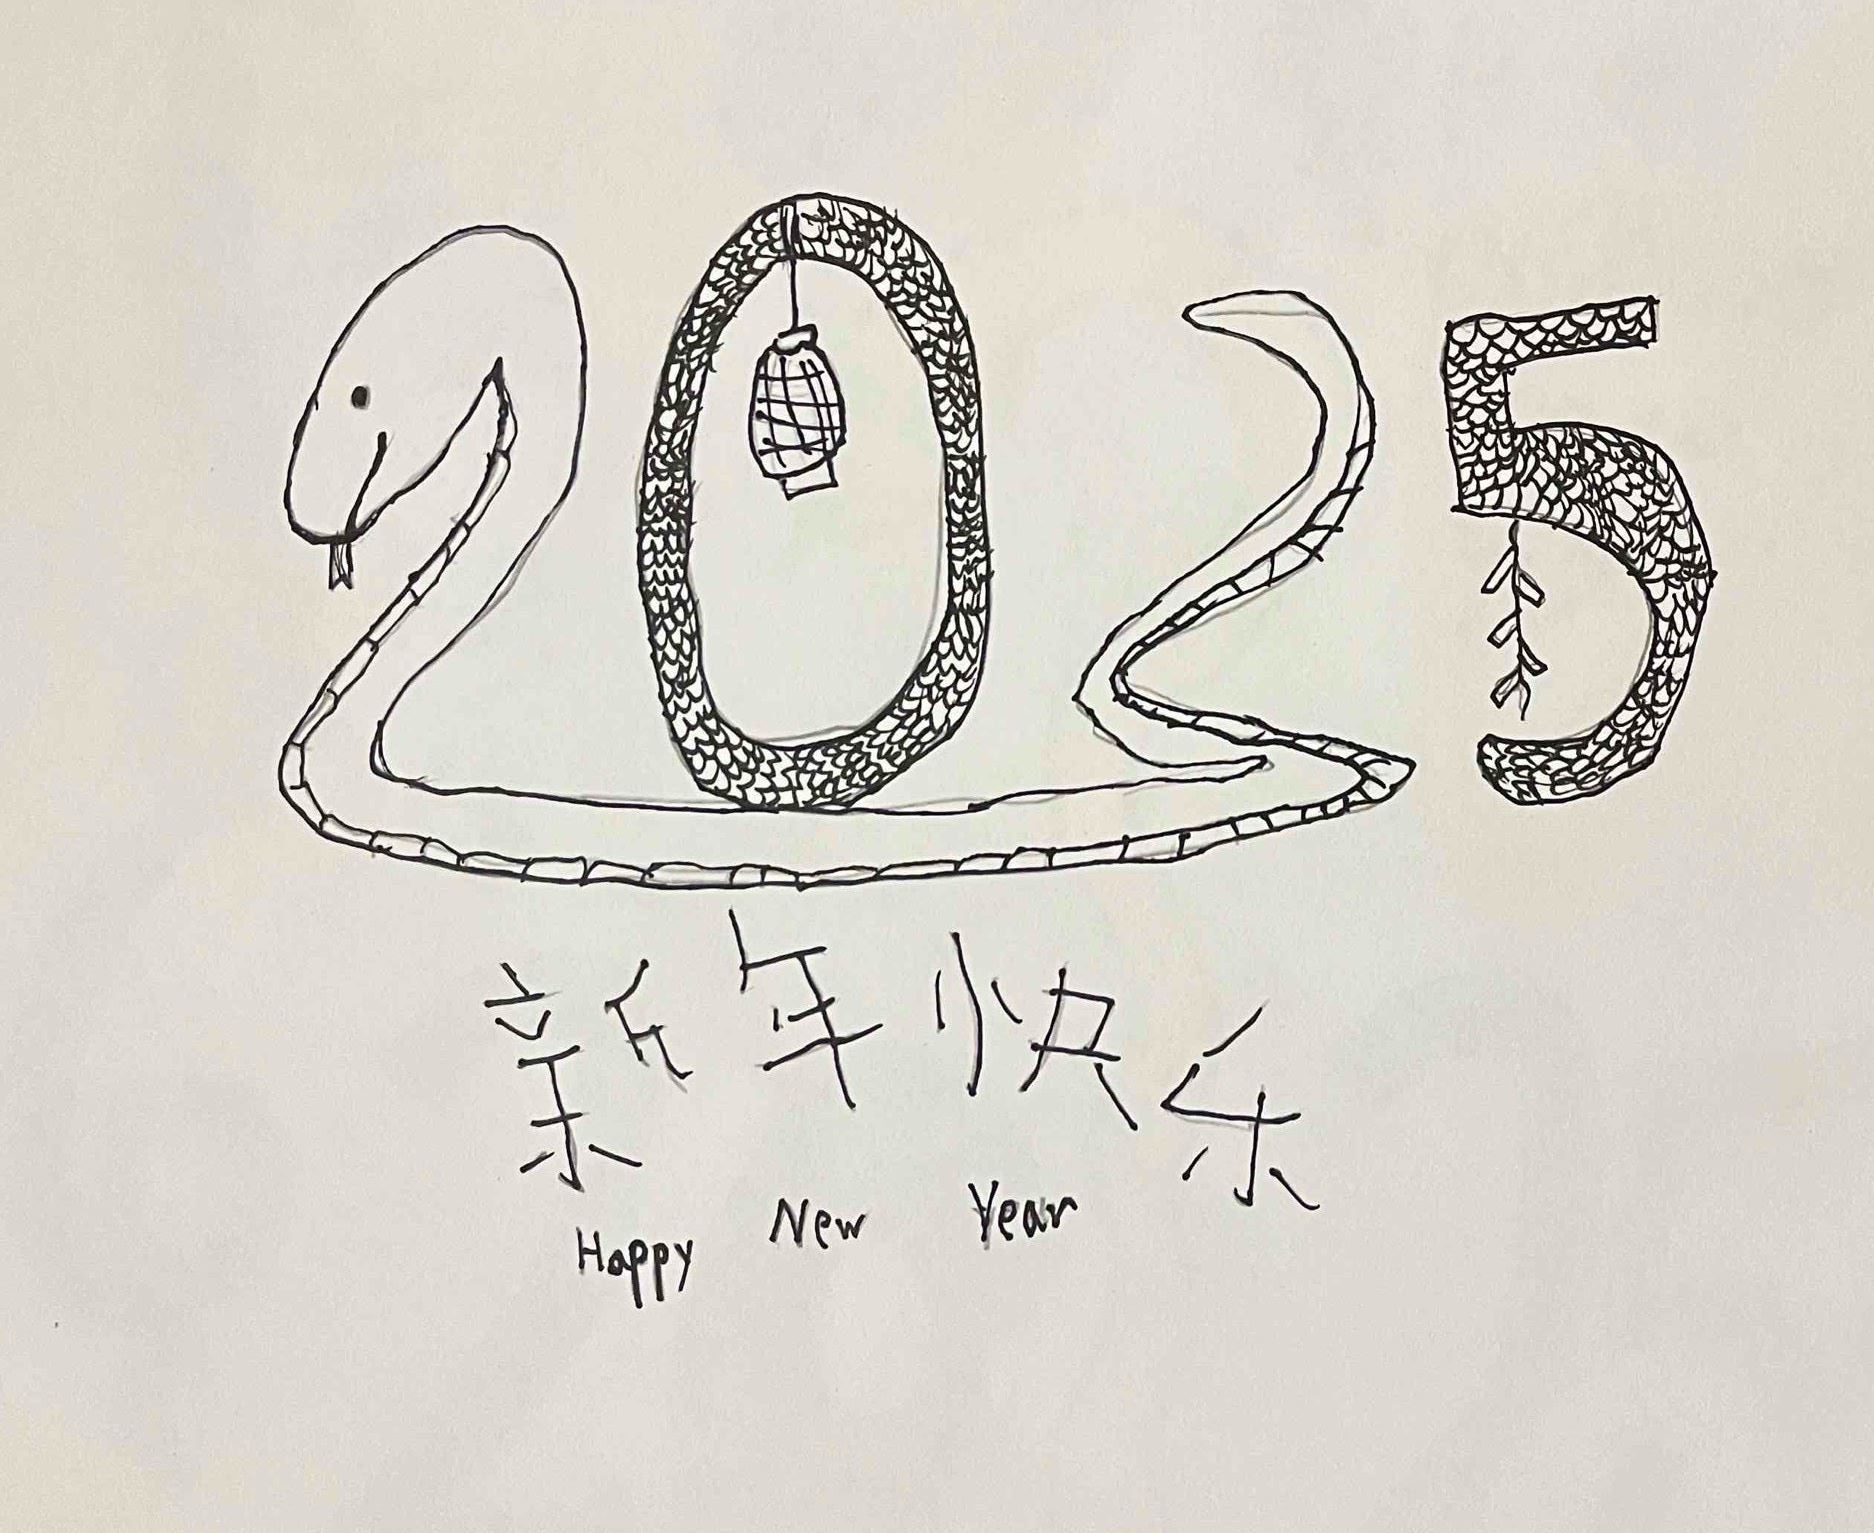 2025
新年快乐
Happy New Year